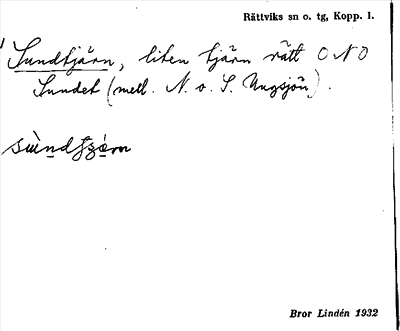 Rättviks sn o. tg, Kopp. l.
Sundtjärn, liten tjärn rätt O N O
Sundet (mell. N. o. S. Ungsjön).
Bror Lindén 1932